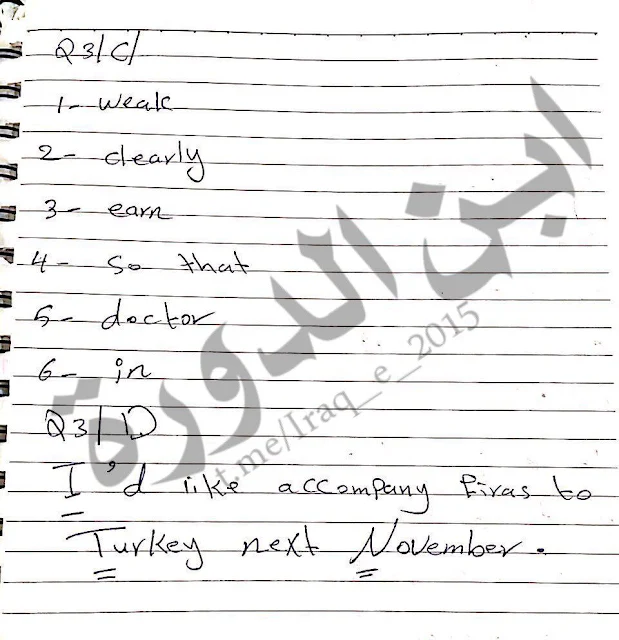 Q3/C/
1- weak
2- clearly
3- earn
4- so that
5- doctor
6- in
Q3/D
I'd like accompany Firas to
Turkey next November.
ابن الدورة
t.me/Iraq_e_2015